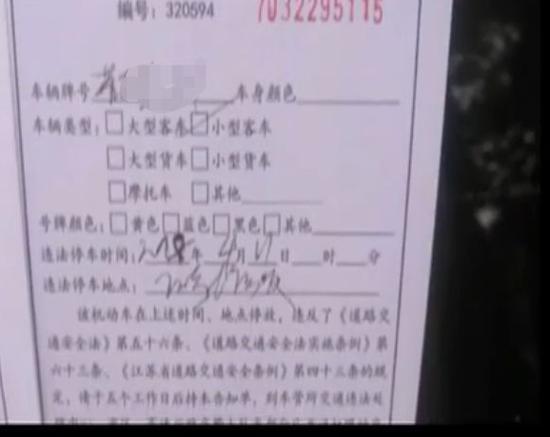 编号：320594 7032295115
车辆牌号 车身颜色
车辆类型：□大型客车☑小型客车
□大型货车□小型货车
□摩托车 □其他
号牌颜色：□黄色□蓝色□黑色□其他
违法停车时间： 年 月 日 时 分
违法停车地点：
该机动车在上述时间、地点停放，违反了《道路交
通安全法》第五十六条、《道路交通安全法实施条例》第
六十三条、《江苏省道路交通安全条例》第四十三条的规
定，请于五个工作日后持本告知单，到车管所交通违法处